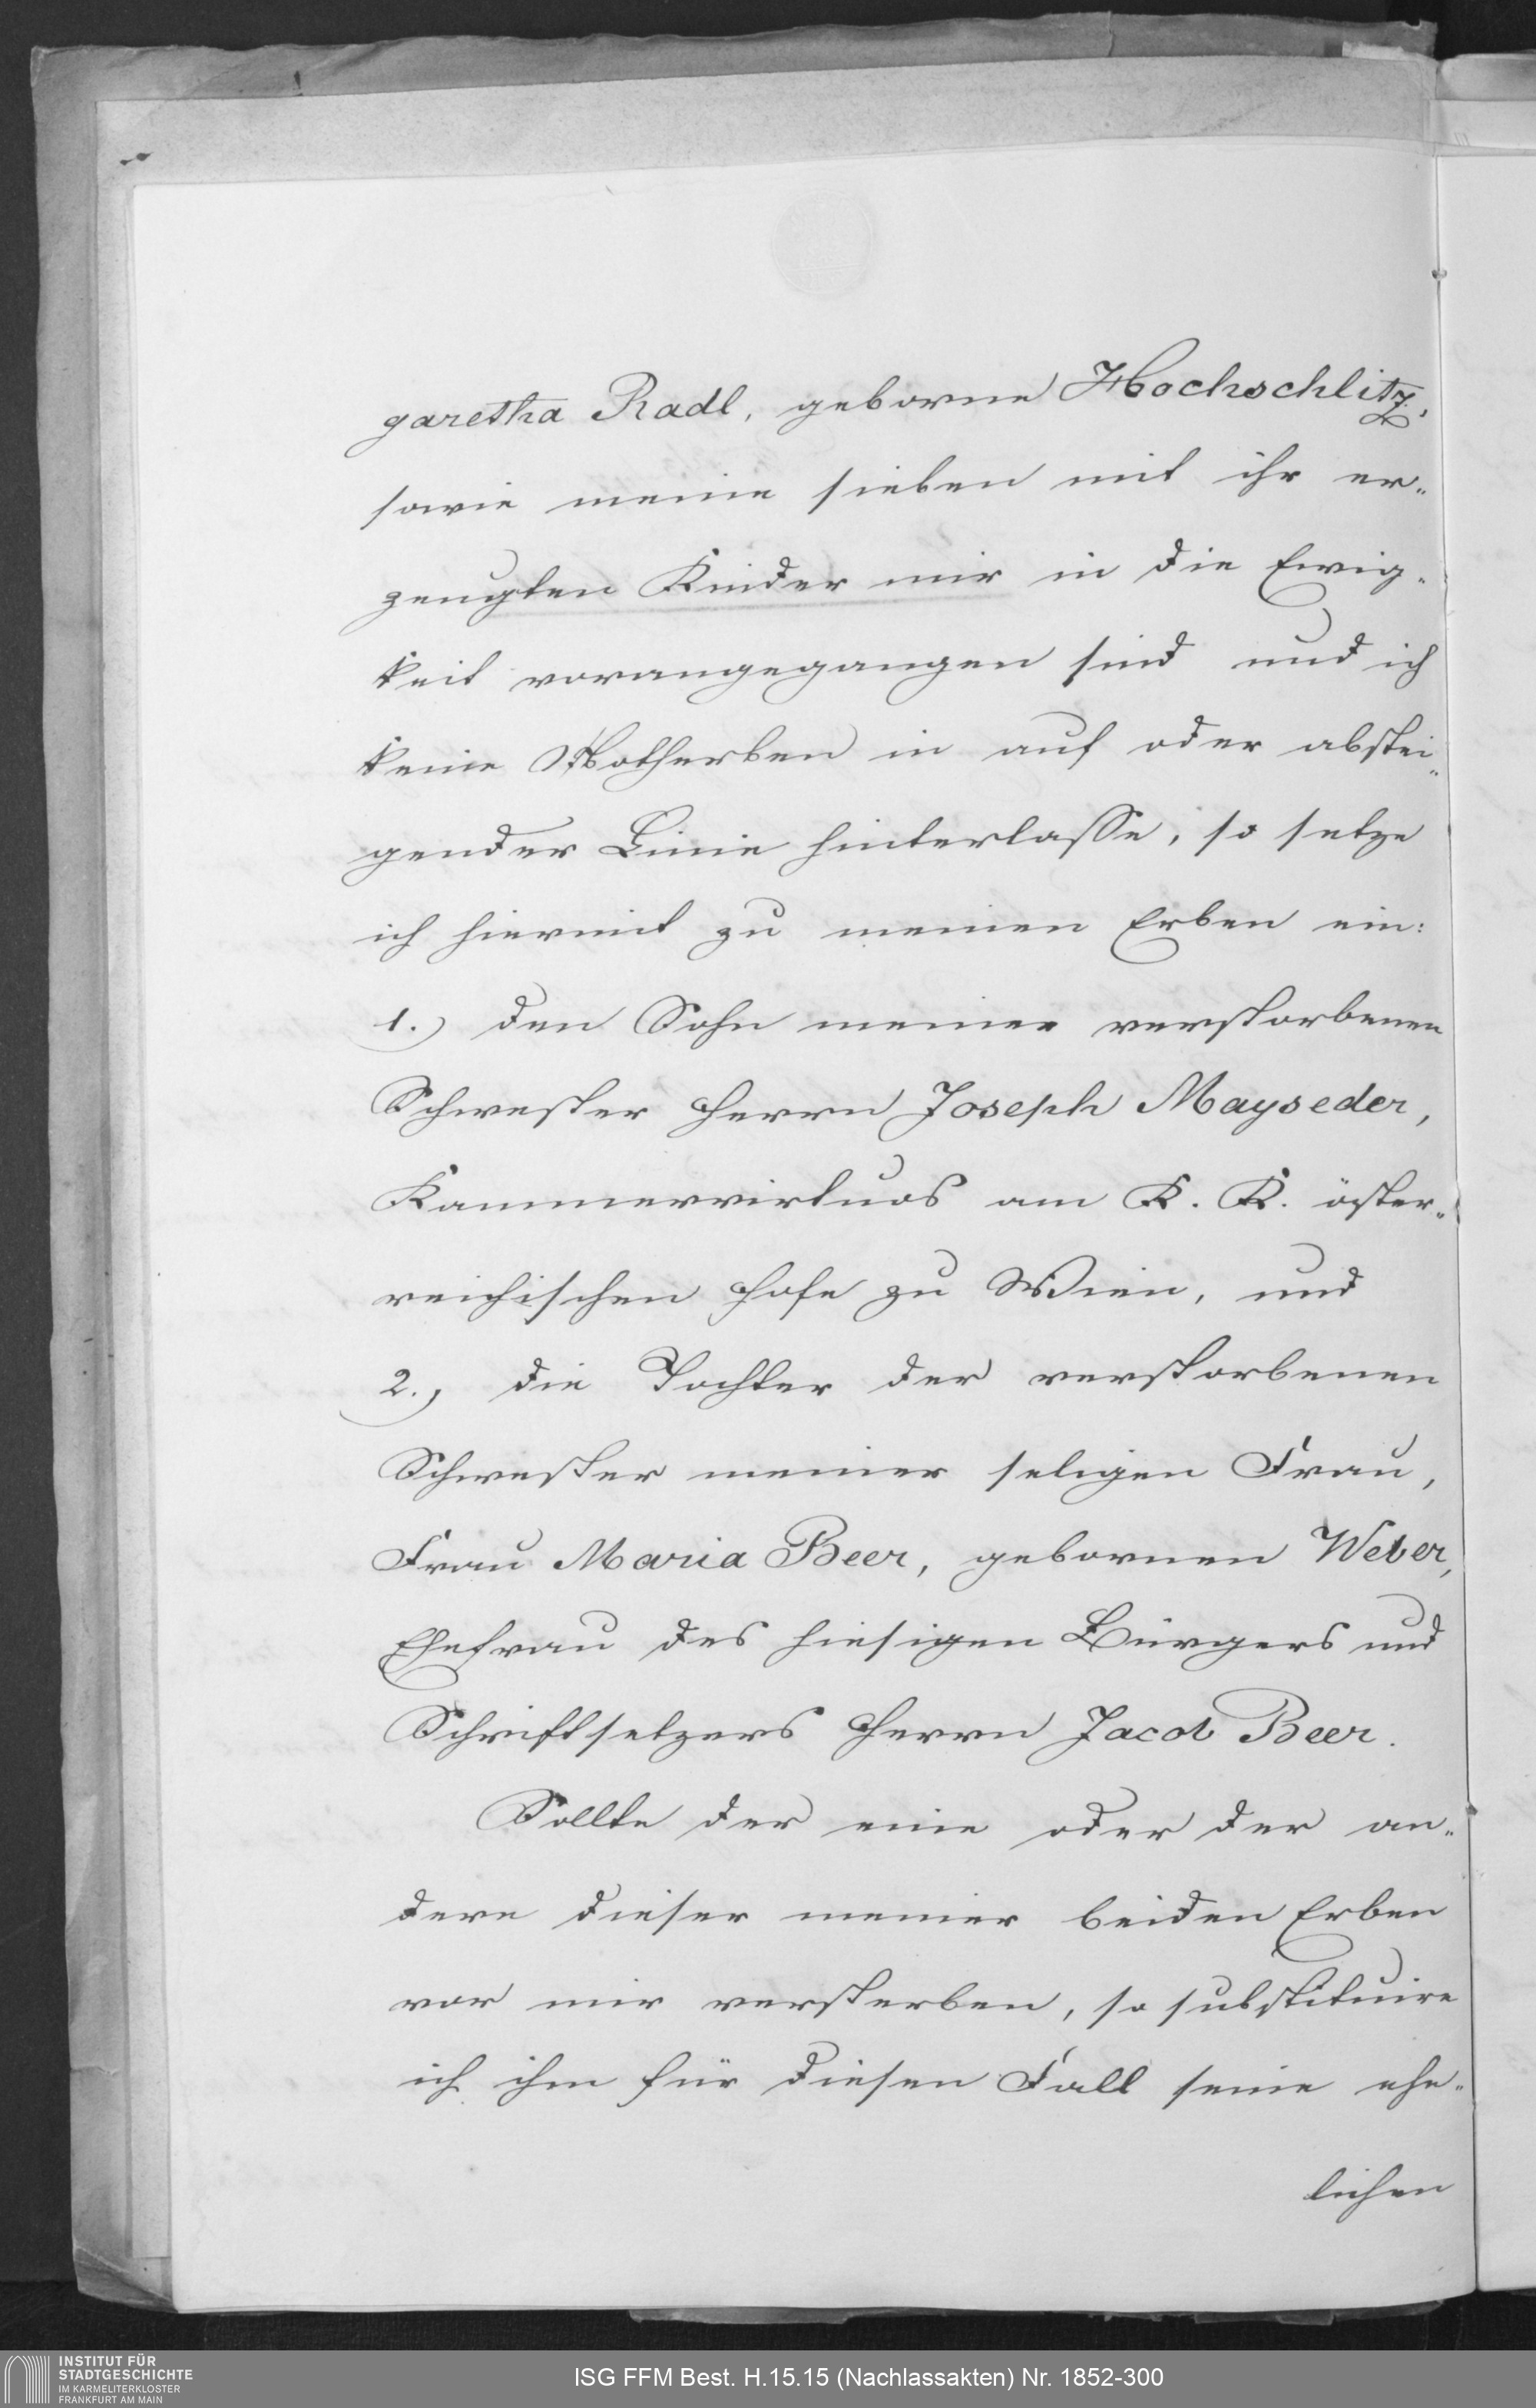 garetha Radl, geborne Hochschlitz,
sowie meine sieben mit ihr er-
zeugten Kinder mir in die Ewig-
keit vorangegangen sind und ich
keine Notherben in auf oder abstei-
gender Linie hinterlasse, so setze
ich hiermit zu meinen Erben ein:
1.) den Sohn meiner verstorbenen
Schwester Herrn Joseph Mayseder,
Kammervirtuos am K. K. öster-
reichischen Hofe zu Wien, und
2.) die Tochter der verstorbenen
Schwester meiner seligen Frau,
Frau Maria Beer, gebornen Weber,
Ehefrau des hiesigen Bürgers und
Schriftsetzers Herrn Jacob Beer.
Sollte der eine oder der an-
dere dieser meiner beiden Erben
vor mir versterben, so substituire
ich ihm für diesen Fall seine ehe-
lichen
INSTITUT FÜR
STADTGESCHICHTE
IM KARMELITERKLOSTER
FRANKFURT AM MAIN
ISG FFM Best. H.15.15 (Nachlassakten) Nr. 1852-300